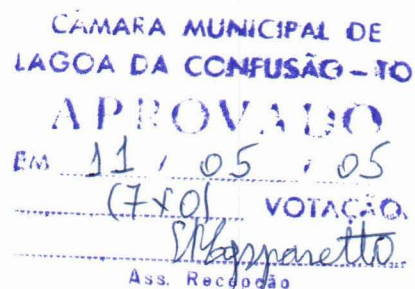 CÂMARA MUNICIPAL DE
LAGOA DA CONFUSÃO - TO
APROVADO
EM 11 / 05 / 05
(7x0) VOTAÇÃO.
Ass. Recepção